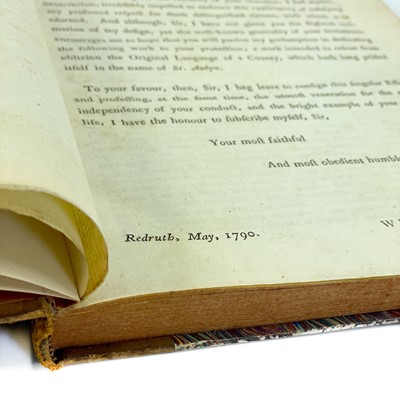 adorned. And although, Sir, I have not given you the
motion of my design, yet the well-known generosity of your
encourages me to hope that you will pardon my presumption in dedicating
the following work to your protection, a work intended to reſcue from
oblivion the Original Language of a County, which hath long prided
itſelf in the name of St. Aubyn.
To your favour, then, Sir, I beg leave to conſign this Singular
and profeſſing, at the ſame time, the utmoſt veneration for the
independency of your conduct, and the bright example of your
life, I have the honour to ſubſcribe myſelf, Sir,
Your moſt faithful
And moſt obedient humble
W
Redruth, May, 1790.